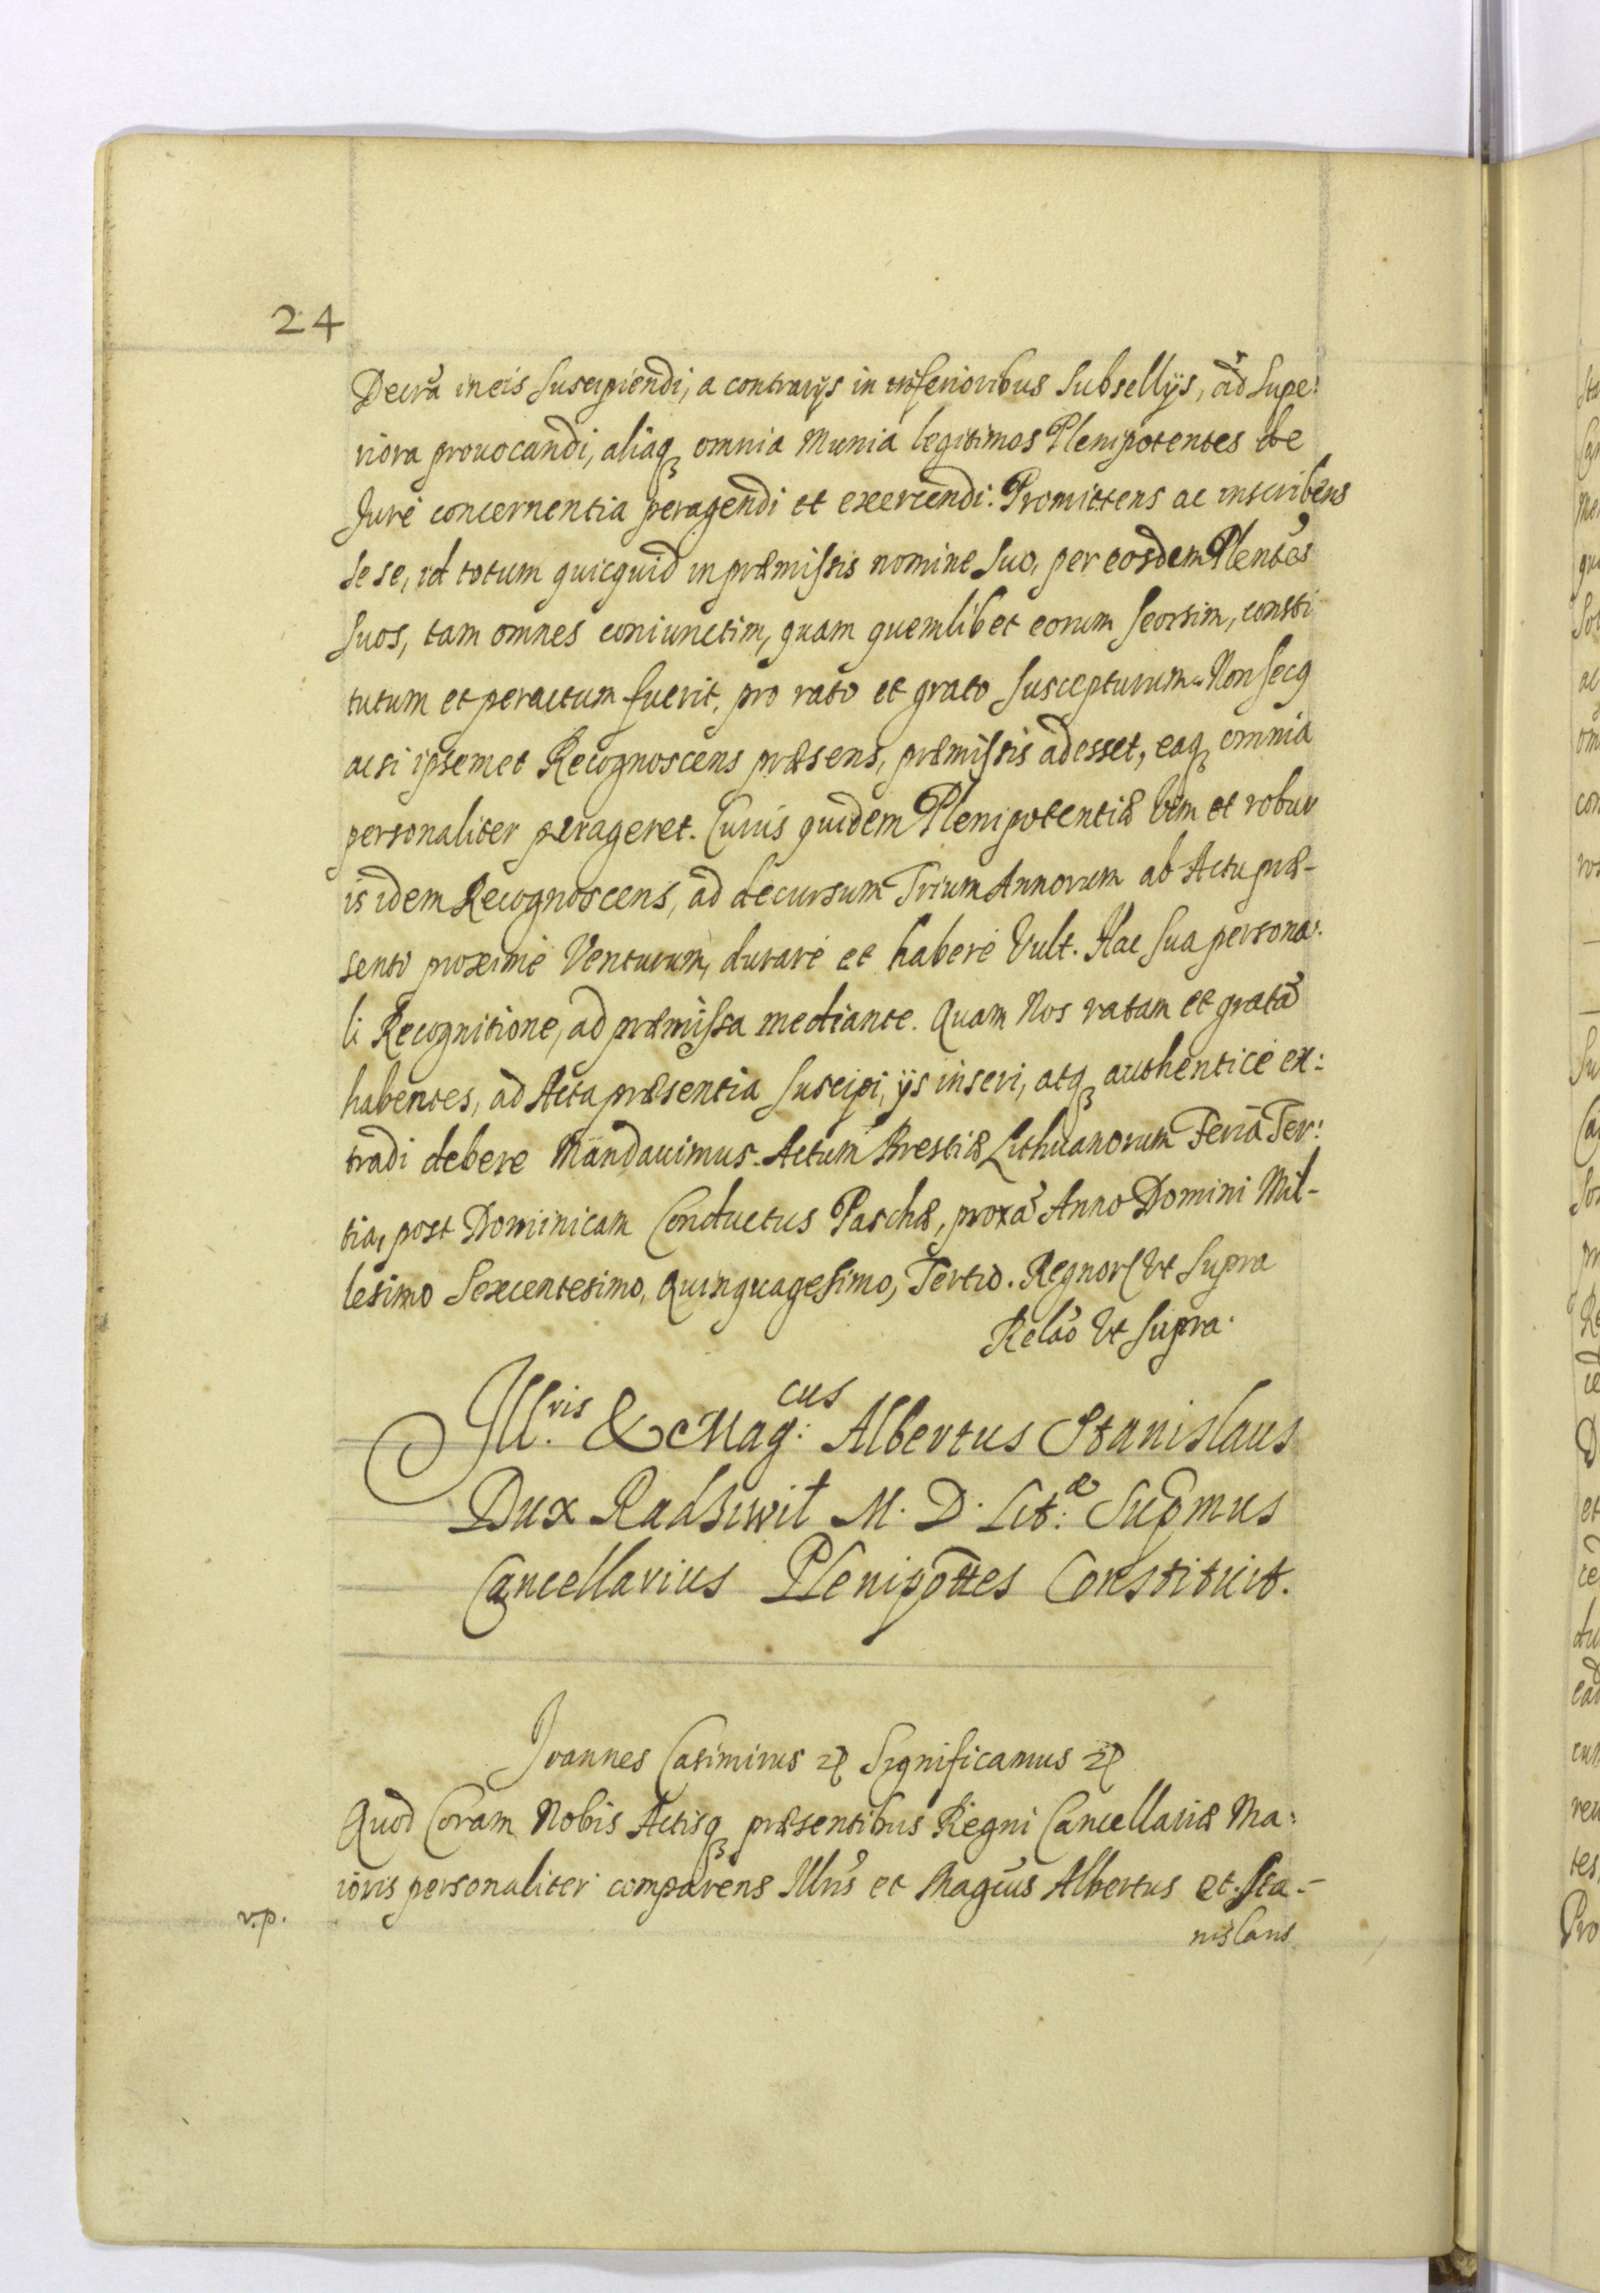 24
Decra in eis suscipiendi, a contrarijs in inferioribus subsellijs, ad supe:
riora prouocandi, aliaq omnia munia legitimos Plenipotentes de
Jure concernentia peragendi et exercendi. Promittens ac inscribens
sese, id totum quicquid in præmissis nomine suo, per eosdem Plentes
suos, tam omnes coniunctim, quam quemlibet eorum seorsim, consti
tutum et peractum fuerit, pro rato et grato suscepturum. Non secq
acsi ipsemet Recognoscens præsens, præmissis adesset, eaq omnia
personaliter perageret. Cuius quidem Plenipotentiæ vim et robur
is idem Recognoscens, ad decursum Trium Annorum ab Actu præ-
senti proximè Venturum, durare et habere Vult. Hac sua persona:
li Recognitione, ad præmissa mediante. Quam Nos ratam et gratã
habentes, ad Acta præsentia suscipi, ijs inseri, atq authenticè ex:
tradi debere Mandauimus. Actum Brestiæ Lithuanorum Feria Ter:
tia, post Dominicam Conductus Paschæ, proxã Anno Domini Mil-
lesimo Sexcentesimo, Quinquagesimo, Tertio. Regnor Vt supra
Relão Vt supra.
Ill.ris & Mag:cus Albertus Stanislaus
Dux Radziwił M. D. Lit:æ Supmus
Cancellarius Plenipottes Constituit.
Joannes Casimirus etc Significamus etc
Quod Coram Nobis Actisq præsentibus Regni Cancellariæ Ma:
ioris personaliter comparens Illris et Magcus Albertus et Sta-
nislaus
v.p.